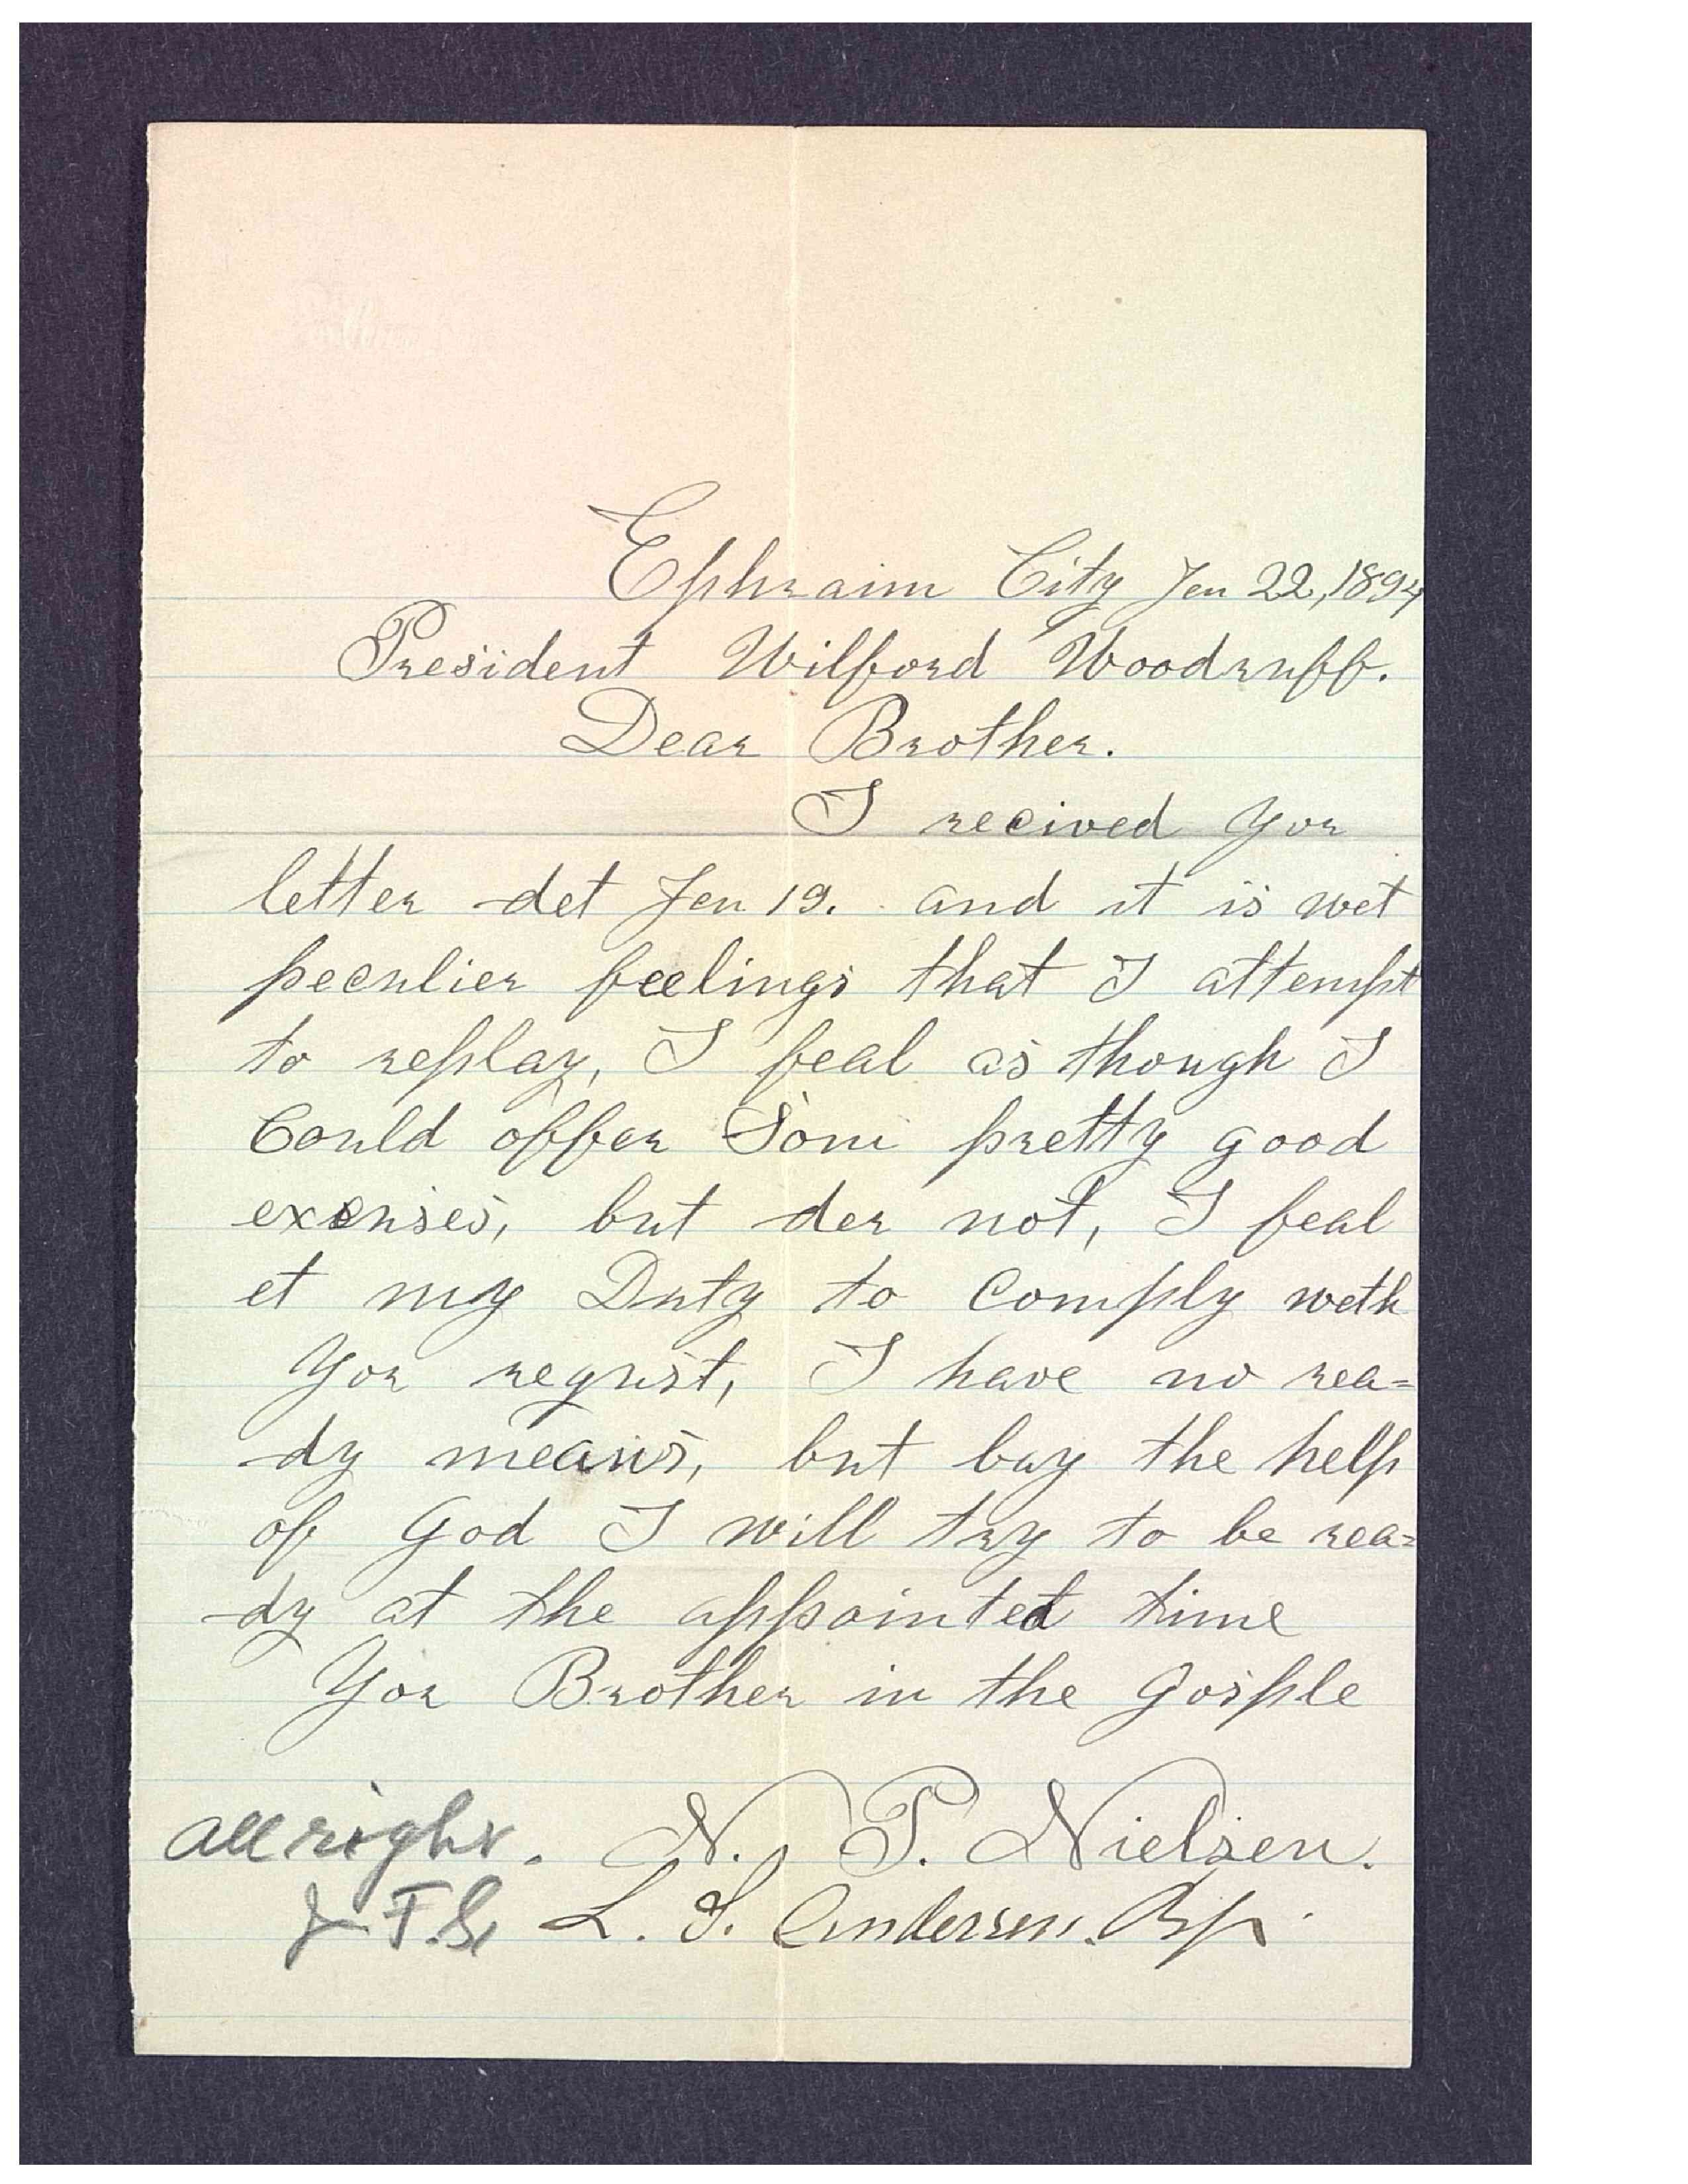 Ephraim City Jen 22, 1894
President Wilford Woodruff.
Dear Brother.
I recived Yor
letter det Jen 19. and it is wet
peculier feelings that I attempt
to replay, I feal as though I
Could offer Som pretty good
excuses, but der not, I feal
et my Duty to Comply weth
Yor requst, I have no rea=
dy means, but bay the help
of God I will try to be rea=
dy at the appointed time
Yor Brother in the Gosple
N. P. Nielsen.
all right.
J. F. S.
L. S. Andersen. Bp.